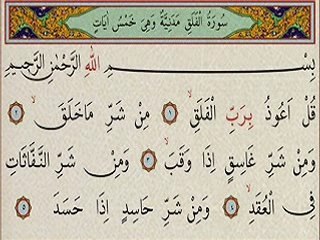 سُورَةُ الْفَلَقِ مَدَنِيَّةٌ وَهِيَ خَمْسُ اٰيَاتٍ
بِسْمِ اللّٰهِ الرَّحْمٰنِ الرَّحِيمِ
قُلْ اَعُوذُ بِرَبِّ الْفَلَقِۙ ﴿١﴾ مِنْ شَرِّ مَا خَلَقَۙ ﴿٢﴾
وَمِنْ شَرِّ غَاسِقٍ اِذَا وَقَبَۙ ﴿٣﴾ وَمِنْ شَرِّ النَّفَّاثَاتِ
فِي الْعُقَدِۙ ﴿٤﴾ وَمِنْ شَرِّ حَاسِدٍ اِذَا حَسَدَ ﴿٥﴾